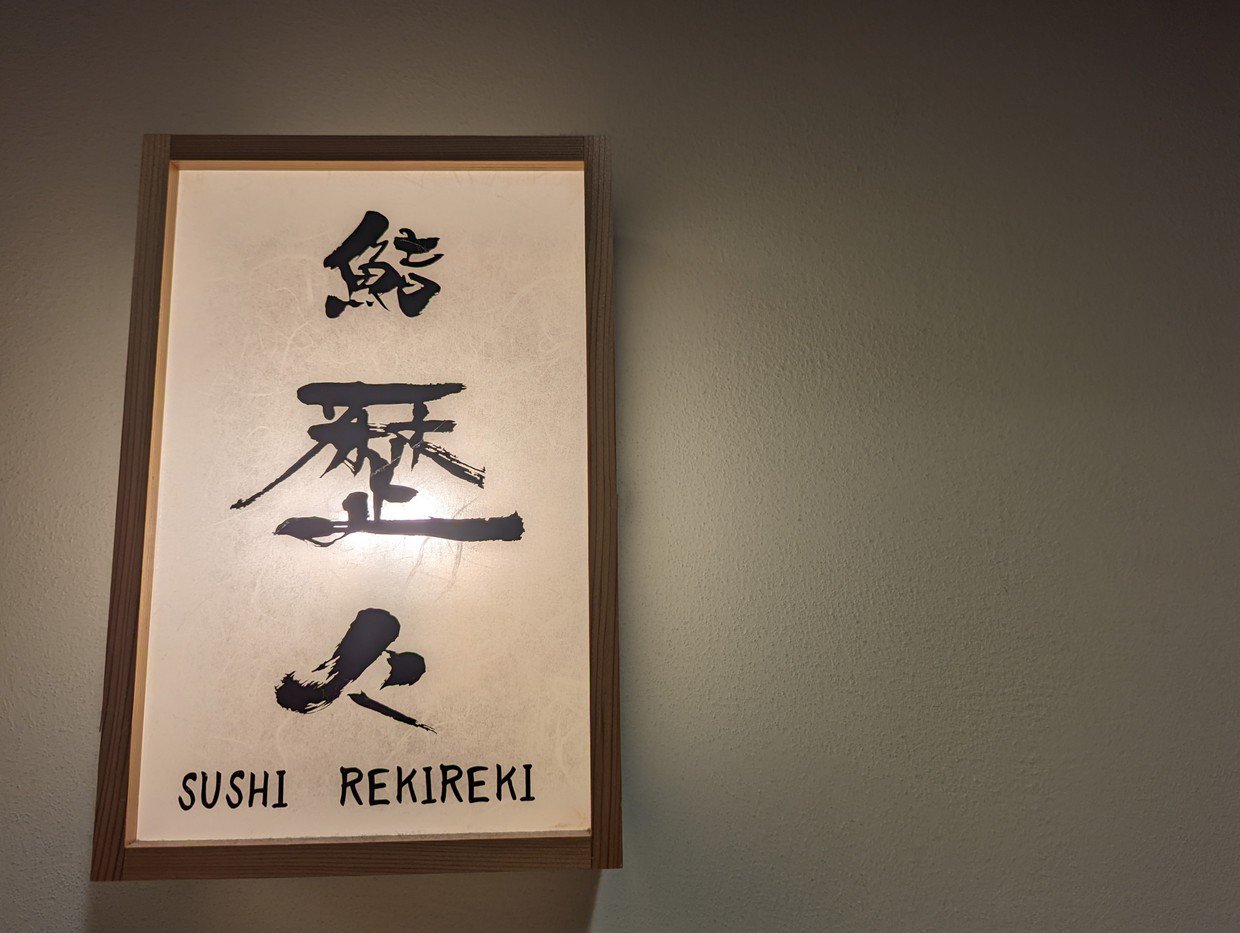 鮨
歴々
SUSHI REKIREKI